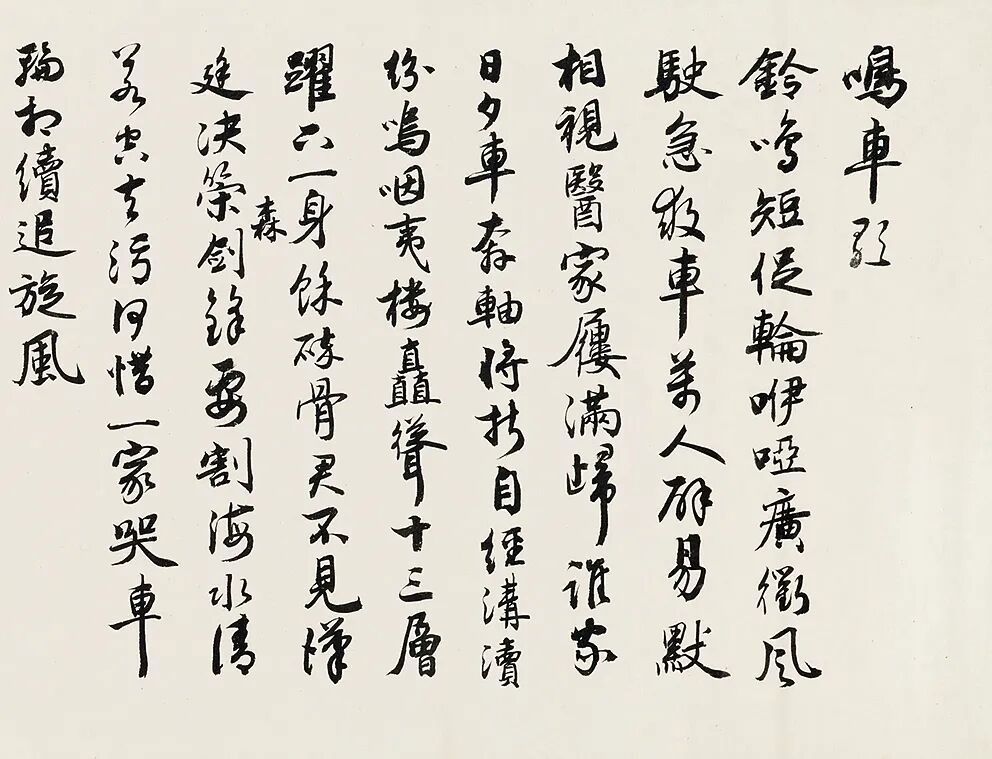 鳴車
鈴鳴短促輪咿啞廣衢風
駛急救車萬人辟易默
相視醫家屨滿歸誰家
日夕車奔軸將折自經溝瀆
紛嗚咽夷樓矗聳十三層
躍下一身餘碎骨君不見漢
廷決策森劍鋒要割海水清
若去污何惜一家哭車
輪相續追旋風